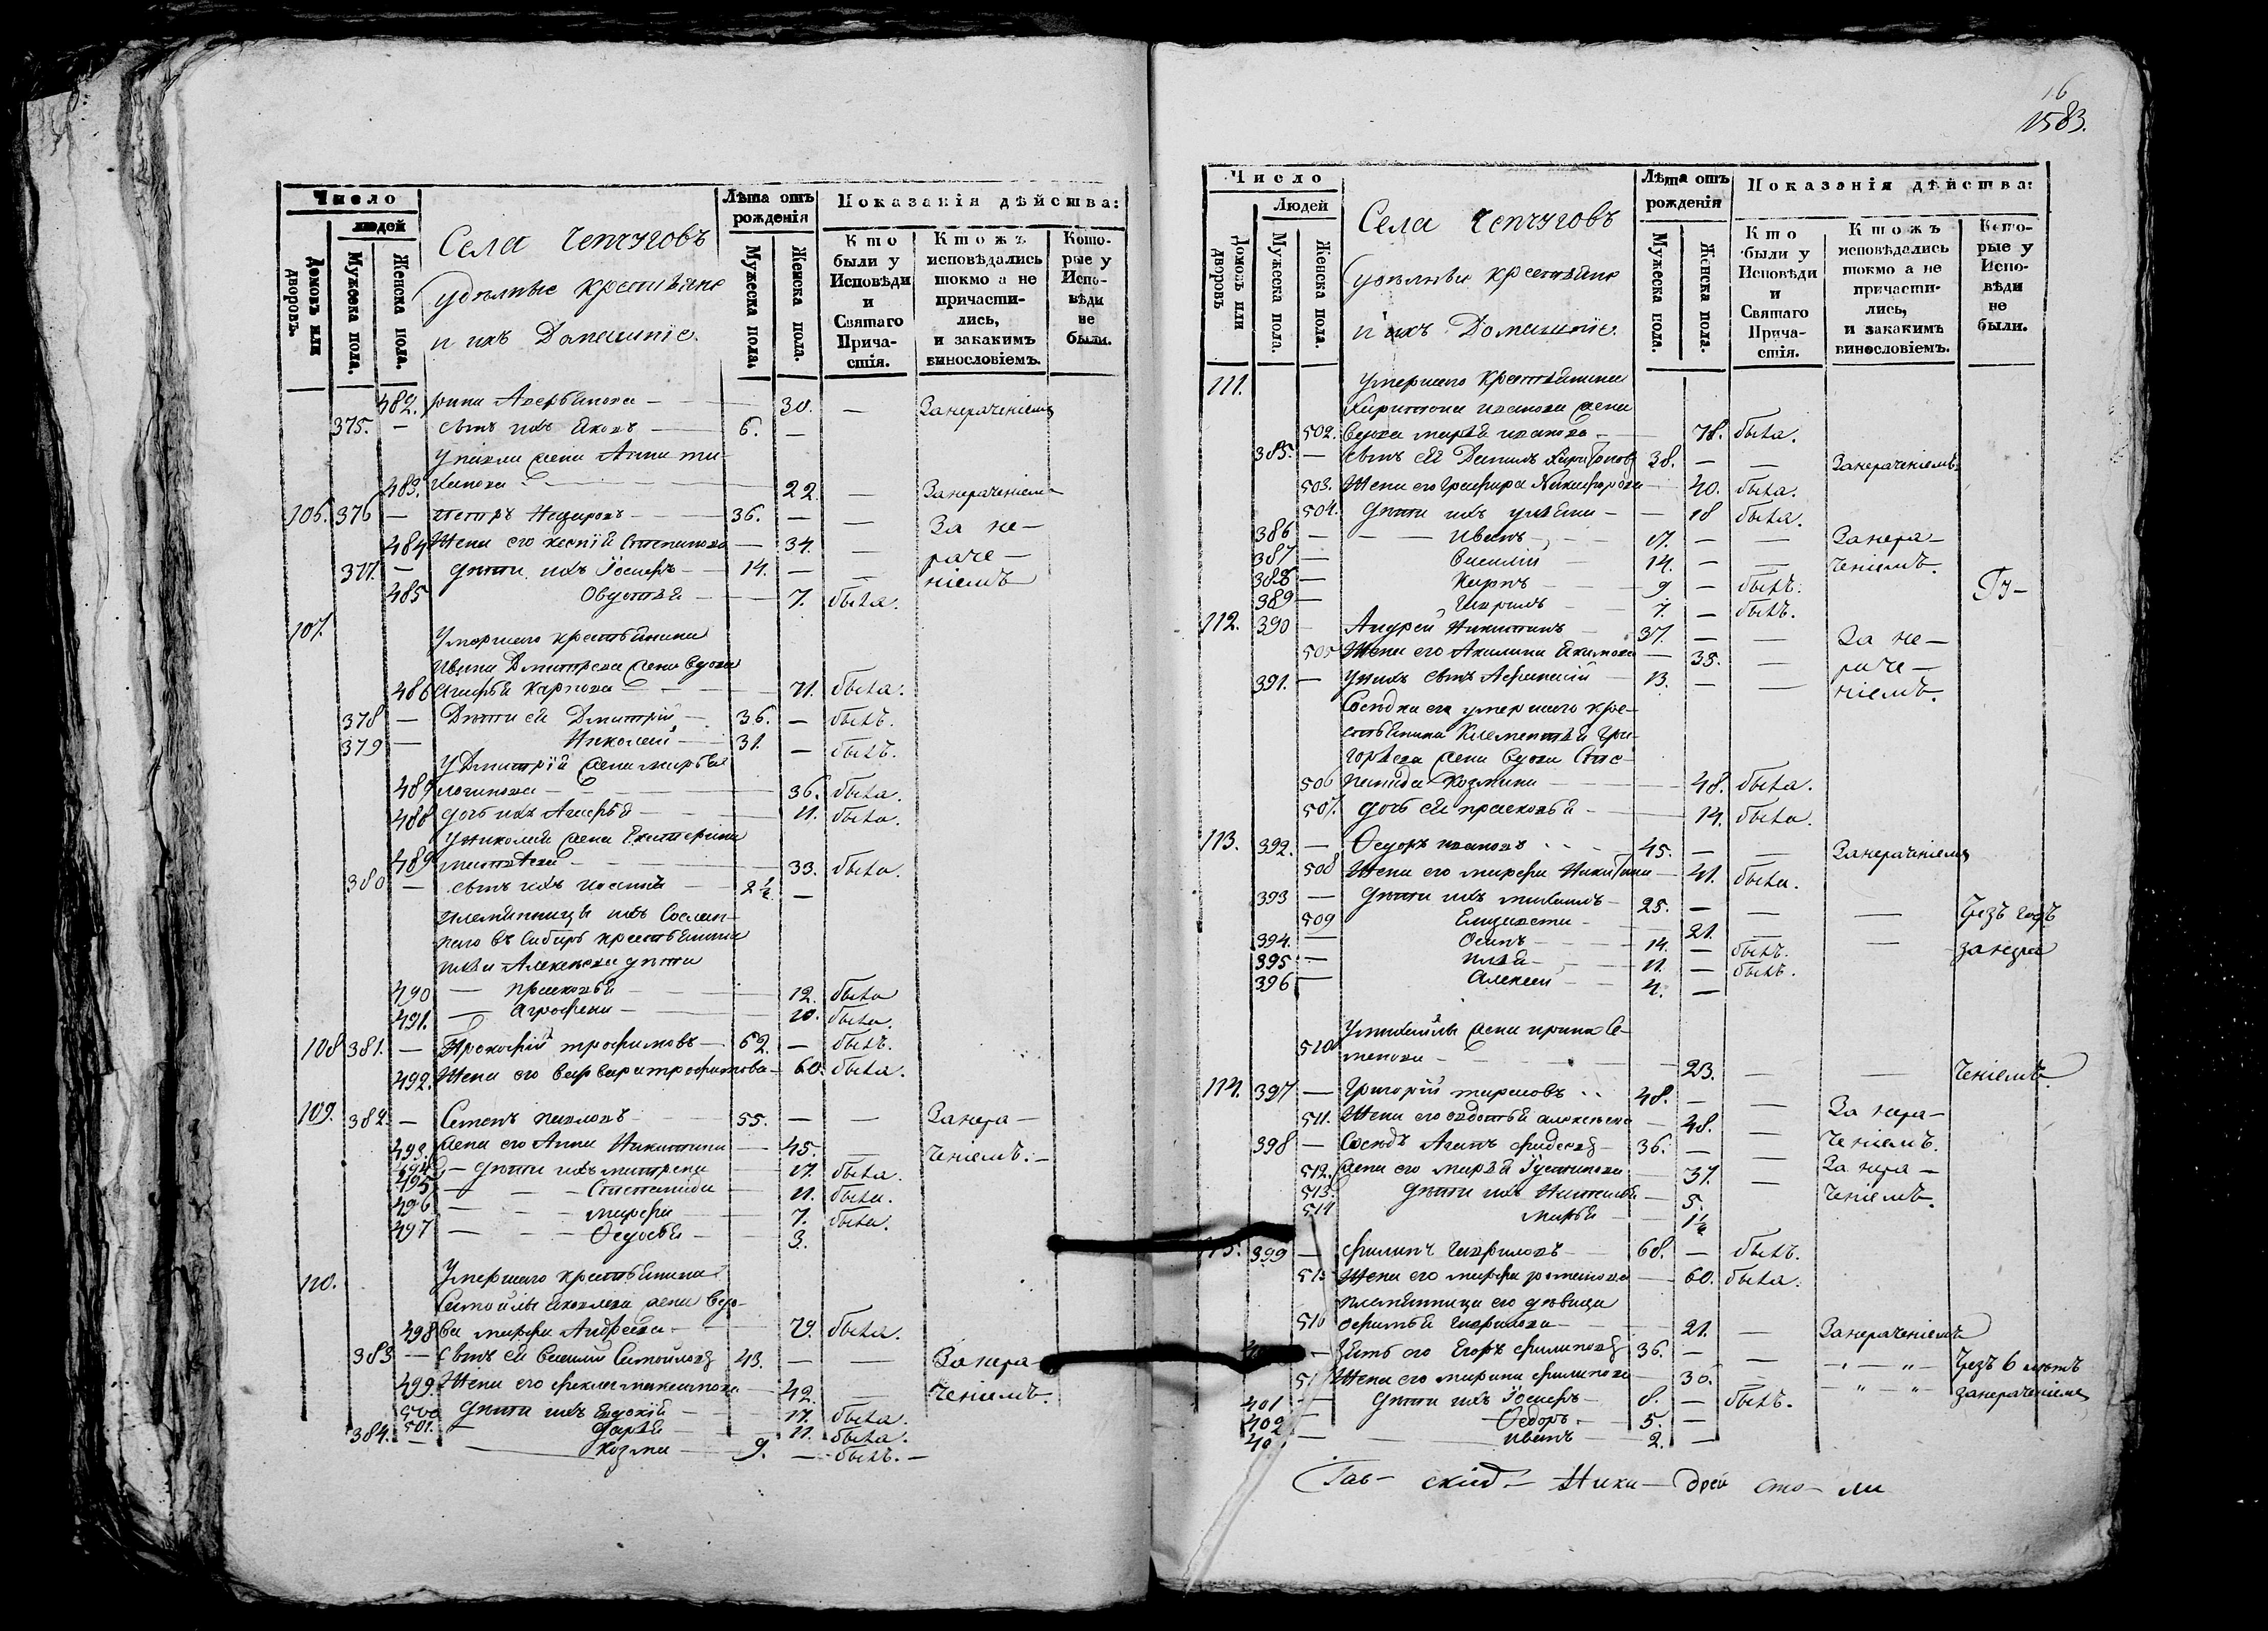 Число
людей
Домовъ или дворовъ.
Мужеска пола.
Женска пола.
Села Чепчуговъ
удѣльные крестьяне
и ихъ Домашніе.
Лѣта отъ рожденія
Мужеска пола.
Женска пола.
Показанія дѣйства:
Кто были у Исповѣди и Святаго Причастія.
Ктожъ исповѣдались токмо а не причастились, и закакимъ винословіемъ.
Которые у Исповѣди не были.
482. рина Аверьянова — 30. — Занераченіемъ
375. — сынъ ихъ Яковъ — 6. —
у павла жена Анна ти-
483. 22. — Занераченіемъ
106. 376 — петръ — 36. — — За не-
484 Жена его Степанова — 34. — раче-
377. — дѣти ихъ Іосифъ — 14. — — ніемъ
485 — 7. была.
107. Умершаго крестьянина
Ивана Дмитрева жена вдова
486 Агафья Карпова — 71. была.
378 — Дѣти ея Дмитрій — 36. — былъ.
379 — Николай — 31. — былъ.
у Дмитрія жена марья
487 логинова — 36. была.
488 дочь ихъ Агафья — 11. была.
у николая жена Екатерина
489 матвѣева — 33. была.
380 — сынъ ихъ — 2½ —
племянницы ихъ Сослан-
наго въ Сибирь крестьянина
Алексѣева дѣти
490 — прасковья — 12. была
491. — Агрофена — 10. была.
108 381. — Прокофій трофимовъ — 62. — былъ.
492. Жена его варвара трофимова — 60. была.
109. 382. — Семенъ павловъ 55. — — Занера-
493. жена его Анна Никитина — 45. — ченіемъ. —
494 — дѣти ихъ матрена 17. была.
495 — Степанида 11. была.
496 — марфа 7. была.
497 — Ѳедосья — 3.
110. Умершаго крестьянина
Самойлы яковлева жена вдо-
498 ва марфа Андреева — 79. была.
383 — сынъ ея Василій Самойловъ 43. — — Занера-
499. Жена его фекла максимова — 42. — ченіемъ.
500 дѣти ихъ — 17. была.
501. — дарья — 11. была.
384. — козма — 9. — былъ. —
16
1583.
Число
Людей
Домовъ или дворовъ
Мужеска пола.
Женска пола.
Села Чепчуговъ
удѣльные крестьяне
и ихъ Домашніе.
Лѣта отъ рожденія
Мужеска пола.
Женска пола.
Показанія дѣйства:
Кто были у Исповѣди и Святаго Причастія.
Ктожъ исповѣдались токмо а не причастились, и закакимъ винословіемъ.
Которые у Исповѣди не были.
111. умершаго Крестьянина
Харитона иванова жена
502. вдова марья иванова — 78. была.
385. — сынъ ея Данилъ Харитоновъ 38. — — Занераченіемъ.
503. Жена его Никифорова — 40. была.
504. дѣти ихъ — — 18 была.
386 — — Иванъ — 17. — — Занера-
387 — Василій 14. — — ченіемъ.
388 — Карпъ 9 — былъ.
389 — Гаврилъ 7. — былъ. Гу-
112. 390 — Андрей Никитинъ 37. — — За не-
505 Жена его Акилина Якимова — 35. — раче-
391. — у нихъ сынъ Афанасій — 13. — — ніемъ.
Сосѣдка его умершаго кре-
стьянина Климентья Гри-
горьева жена вдова Сте-
506 панида Козмина — 48. была.
507. дочь ея прасковья — 14. была.
113. 392. — Ѳедоръ ивановъ — 45. — — Занераченіемъ
508 Жена его марфа Никитина — 41. была.
393 — дѣти ихъ михаилъ — 25. — — — Чрезъ годъ
509 Елизавета — 21. —
394. — Осипъ — 14. — былъ. — занера
395 — илья — 11. — былъ.
396 — Алексей — 4. —
у михайлы жена ирина Се-
510 менова — 23. — — ченіемъ.
114. 397 — Григорій тарасовъ 48. — — За нера-
511. Жена его авдотья алексѣева — 48. — ченіемъ.
398 — Сосѣдъ — 36. — — За нера-
512. жена его марья Іустинова — 37. — ченіемъ.
513. дѣти ихъ Наталья — 5.
514 марья — 1½
115. 399 — филипъ гавриловъ — 68. — былъ.
515 Жена его марфа романова — 60. была.
племянница его дѣвица
516 гаврилова — 21. — Занераченіемъ
— Зять его Егоръ филиповъ 36. — — — „ — „ — Чрезъ 6 лѣтъ
517 Жена его марина филипова — 36. — — „ — „ — занераченіемъ
401 — дѣти ихъ Іосифъ — 8. — былъ.
402 — Ѳедоръ — 5. —
40 — иванъ — 2. —
Гав — скій — Ника — дрей сто — ли